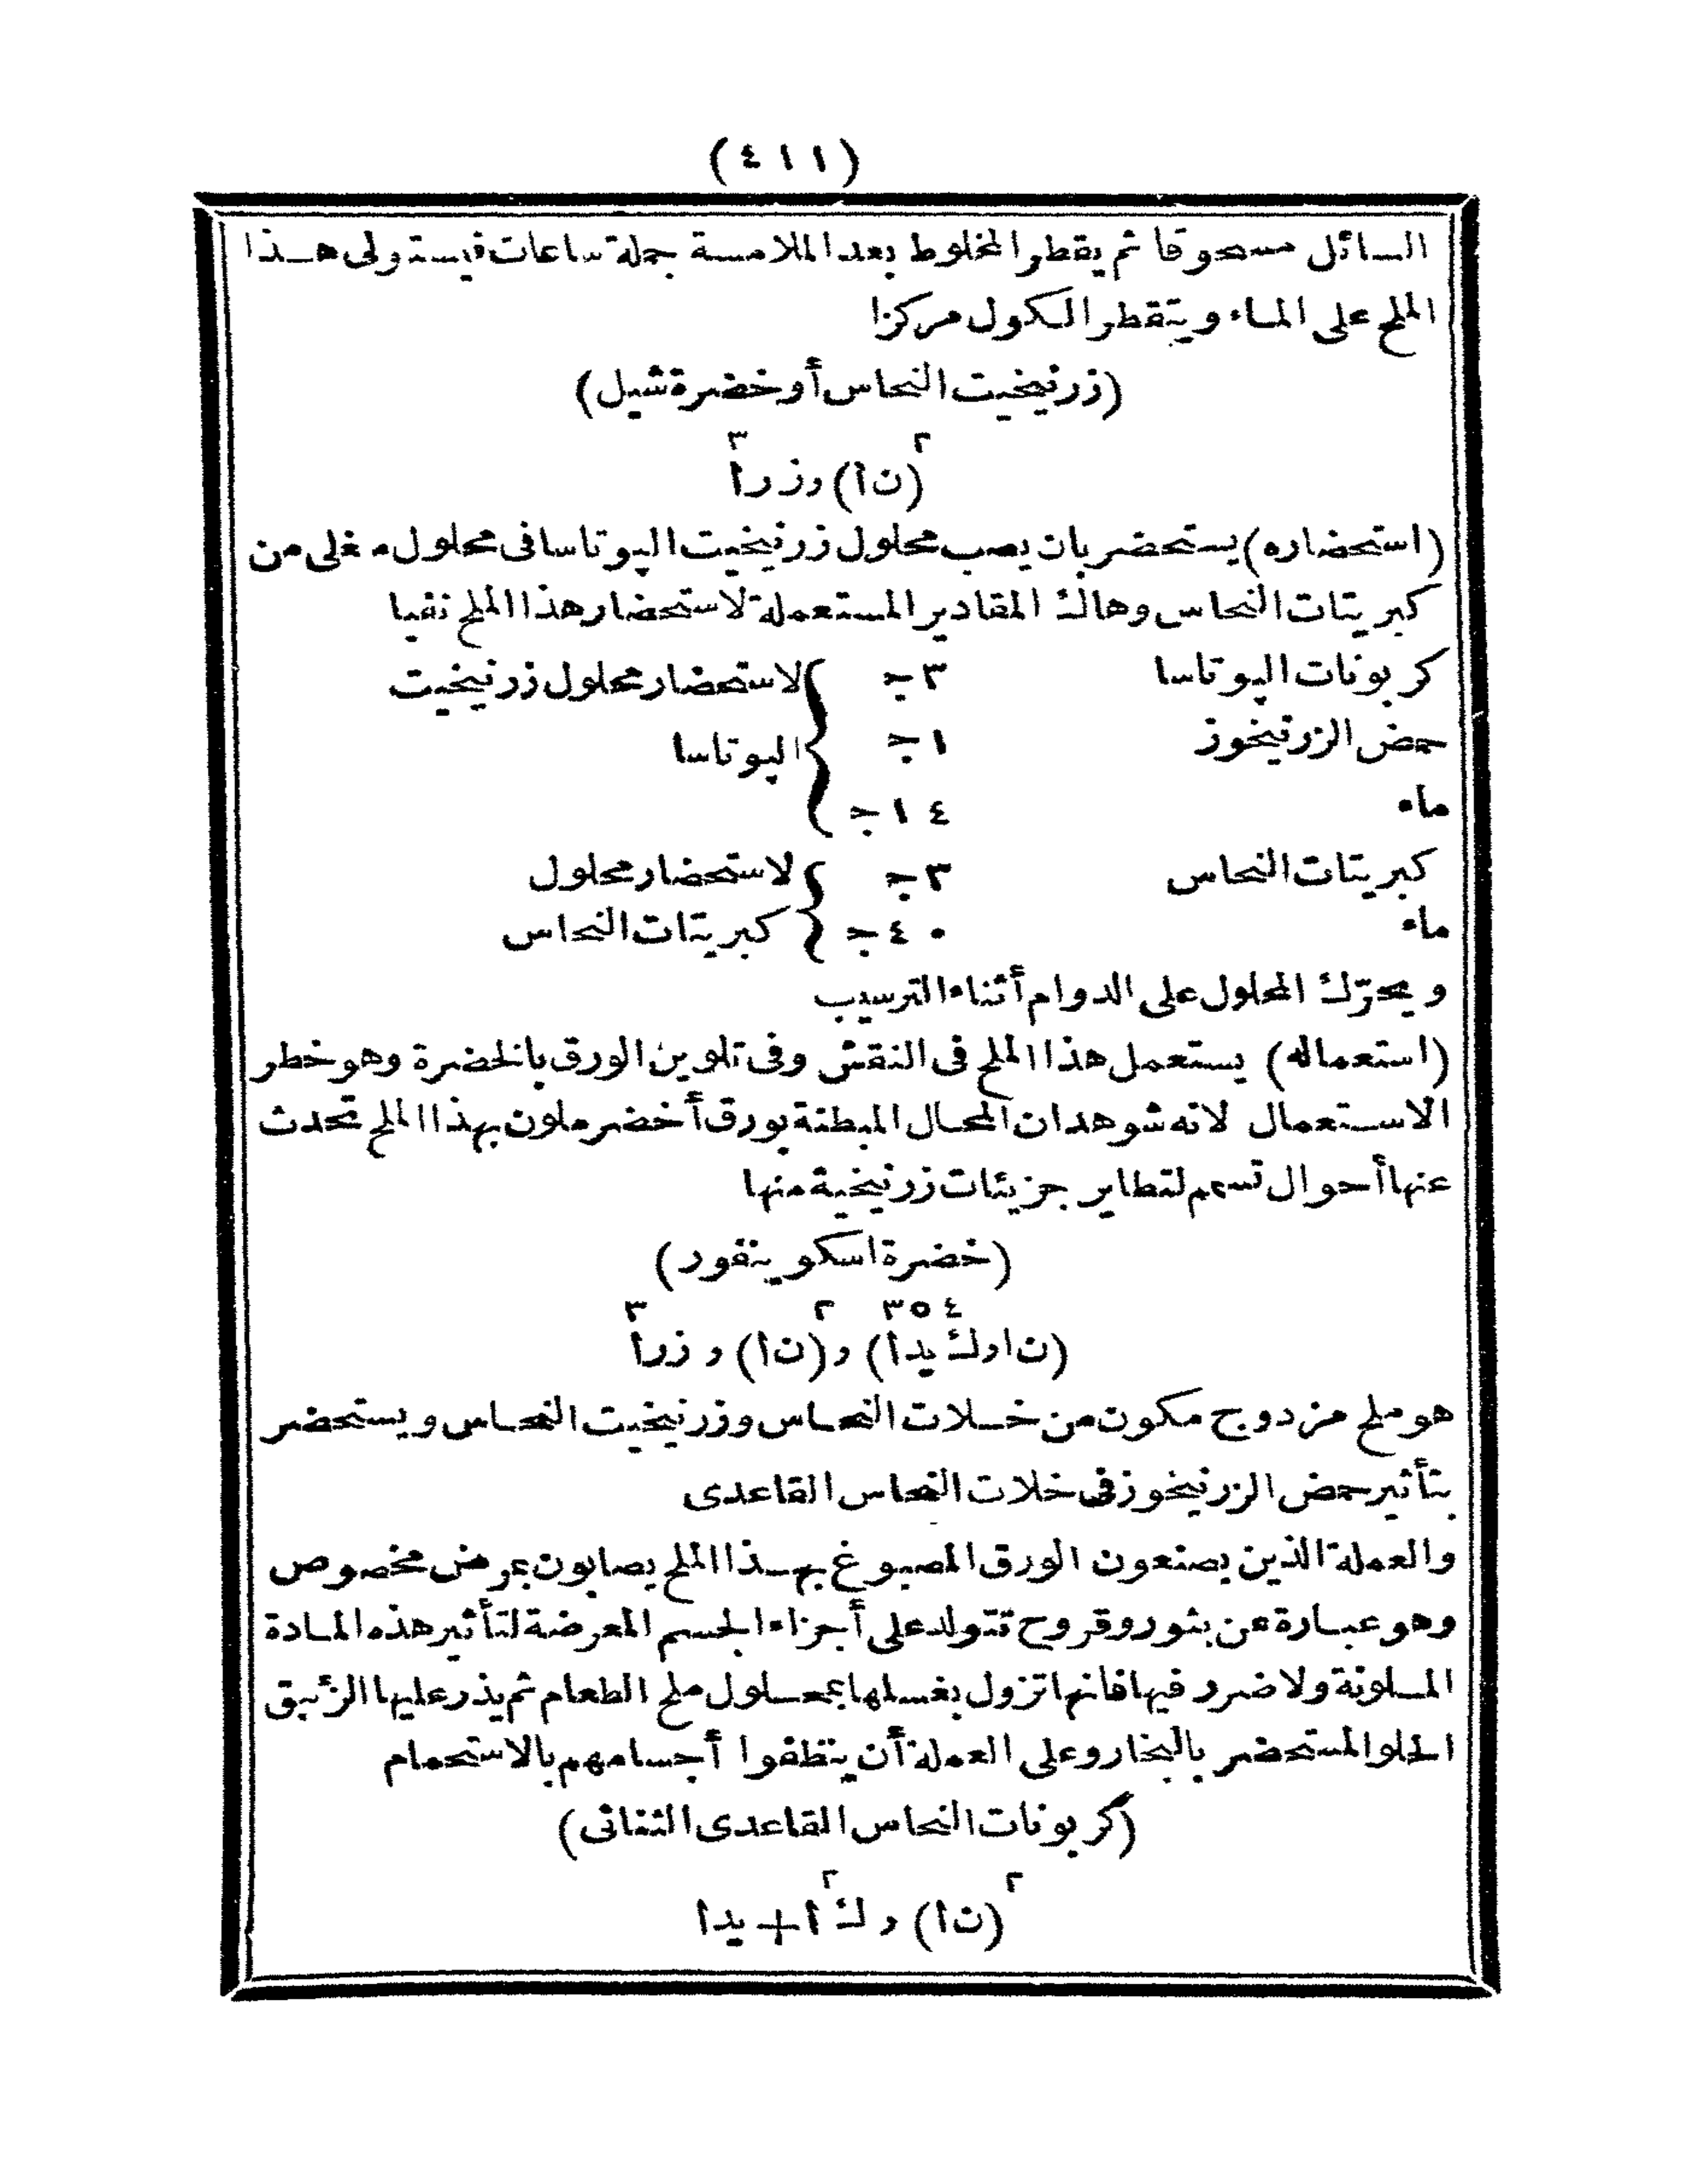 (٤١١)
السائل مسحوقا ثم يقطر المخلوط بعد الملامسة جملة ساعات فيستولى هذا
الملح على الماء ويتقطر الكول مركزا
(زرنيخيت النحاس أو خضرة شيل)
٢ ٣
(ن ا) ر زرا
(استحضاره) يستحضر بان يصب محلول زرنيخيت البوتاسا فى محلول مغلى من
كبريتات النحاس وهاك المقادير المستعملة لاستحضار هذا الملح نقيا
كربونات البوتاسا ٣ ج } لاستحضار محلول زرنيخيت
حمض الزرنيخوز ١ ج } البوتاسا
ماء ١٤ ج }
كبريتات النحاس ٣ ج } لاستحضار محلول
ماء ٤٠ ج } كبريتات النحاس
ويحرّك المحلول على الدوام أثناء الترسيب
(استعماله) يستعمل هذا الملح فى النقش وفى تلوين الورق بالخضرة وهو خطر
الاستعمال لانه شوهد ان المحال المبطنة بورق أخضر ملون بهذا الملح تحدث
عنها أحوال تسمم لتطاير جزيئات زرنيخية منها
(خضرة اسكوينفور)
٤ ٥ ٣ ٢ ٣
(ن ا ر ك يد ا) ر (ن ا) ر زرا
هو ملح مزدوج مكون من خلات النحاس وزرنيخيت النحاس ويستحضر
بتأثير حمض الزرنيخوز فى خلات النحاس القاعدى
والعملة الذين يصنعون الورق المصبوغ بهذا الملح يصابون بمرض مخصوص
وهو عبارة عن بثور وقروح تتولد على أجزاء الجسم المعرضة لتأثير هذه المادة
الملونة ولا ضرر فيها فانها تزول بغسلها بمحلول ملح الطعام ثم يذر عليها الزئبق
الحلو المستحضر بالبخار وعلى العملة أن ينظفوا أجسامهم بالاستحمام
(كربونات النحاس القاعدى الثنائى)
٢ ٢
(ن ا) ر ك ا + يد ا